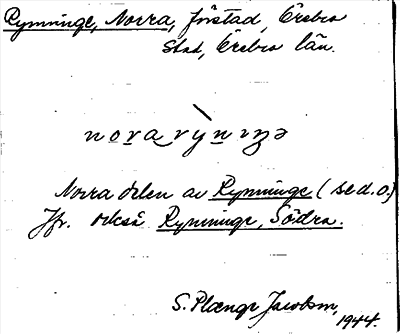 Rynninge, Norra, förstad, Örebro
stad, Örebro län.
nora ryniŋə
Norra delen av Rynninge (se d.o.)
Jfr. också Rynninge, Södra.
S. Plænge Jacobson,
1944.